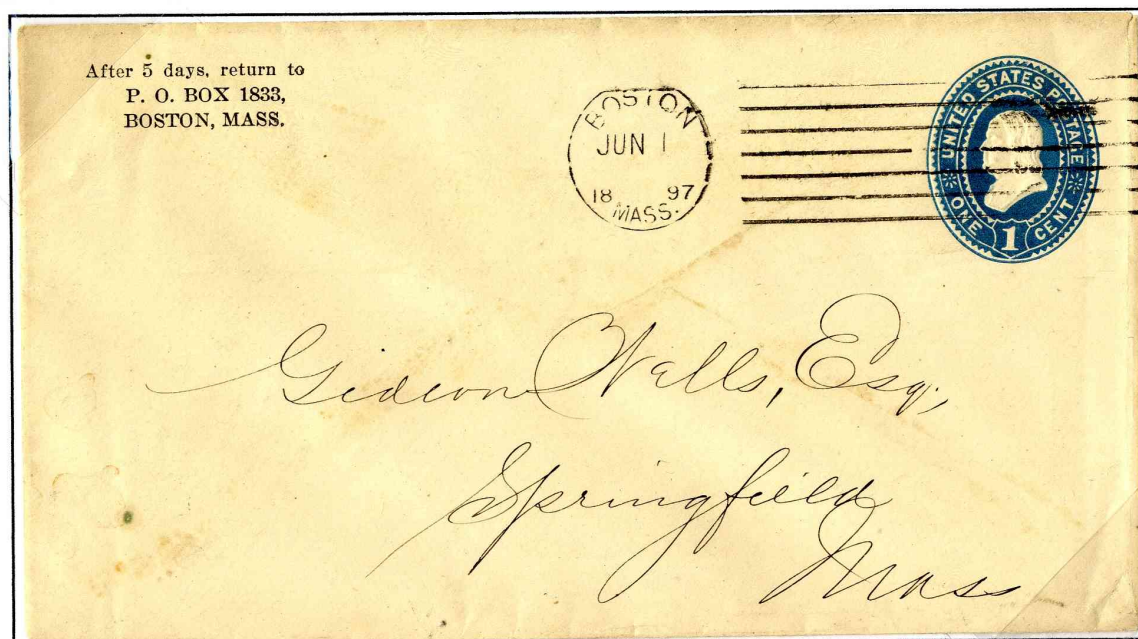 After 5 days, return to
P. O. BOX 1833,
BOSTON, MASS.
BOSTON
JUN 1
18 97
MASS.
UNITED STATES POSTAGE
ONE 1 CENT
Gideon Wells, Esq.,
Springfield
Mass